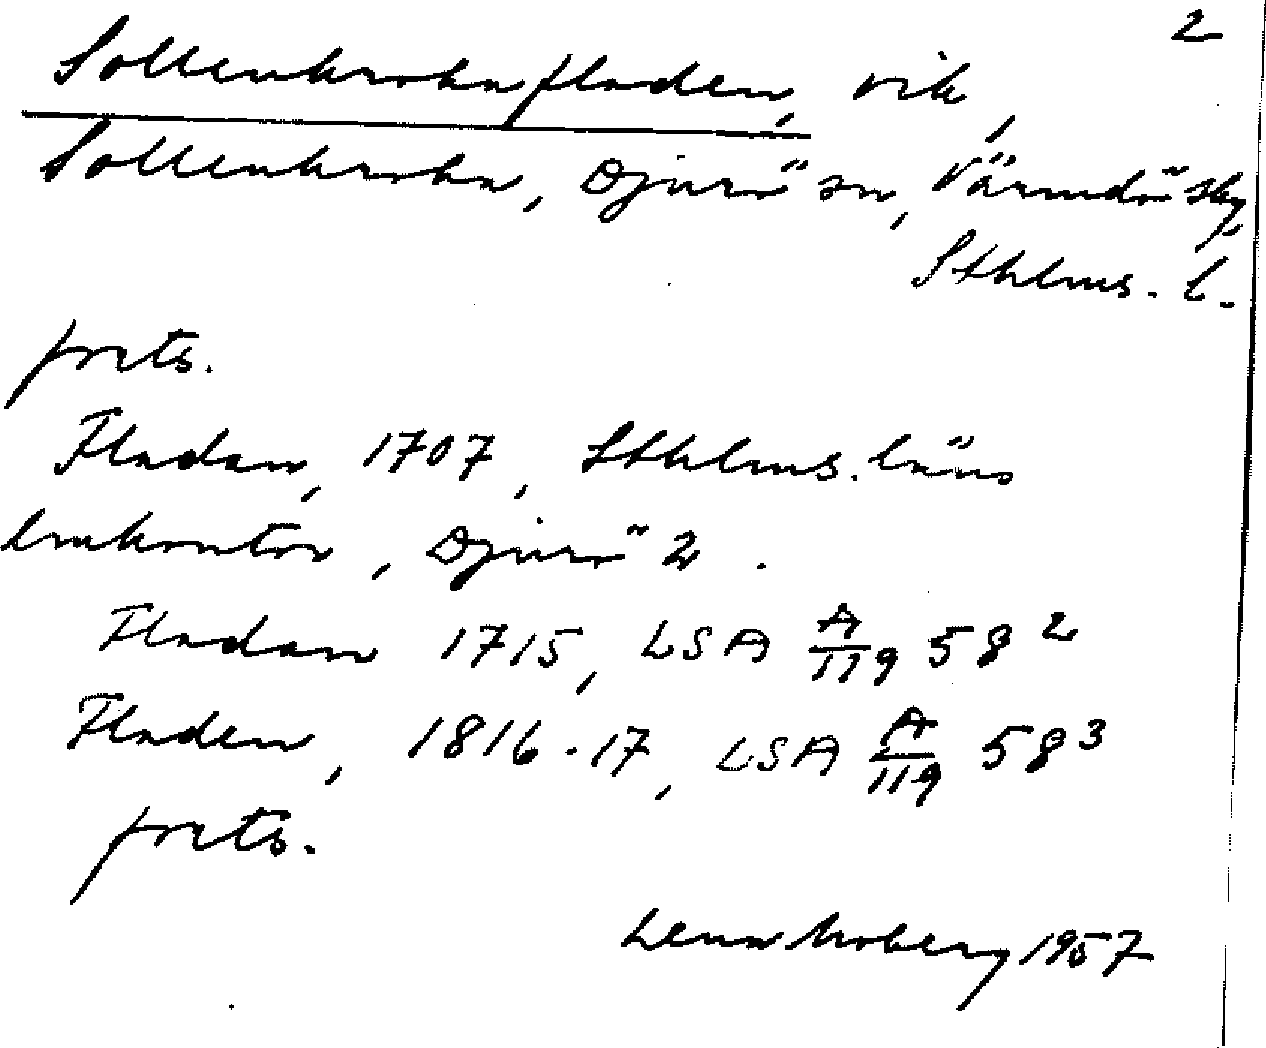 2
Sollenkrokafladen, vik,
Sollenkroka, Djurö sn, Värmdö sky.
Sthlms. l.
forts.
Fladan, 1707, Sthlms. läns
lmkontor, Djurö 2.
Fladan 1715, LSA A/119 58²
Fladen, 1816-17, LSA A/119 58³
forts.
Lena Moberg 1957